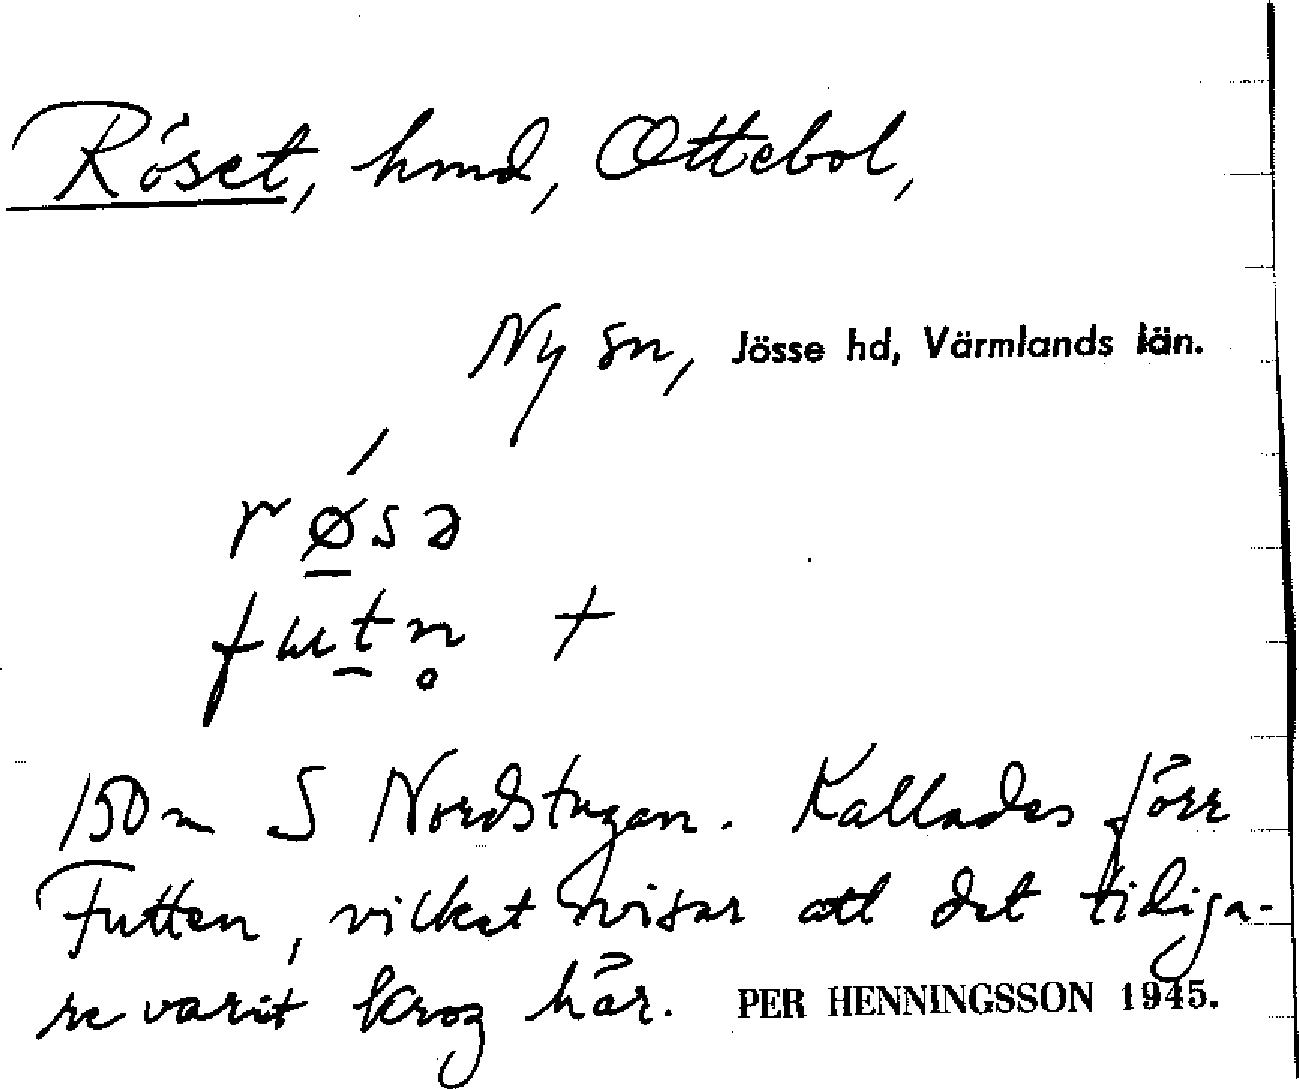 Röset, hmd, Ottebol,
Ny sn, Jösse hd, Värmlands län.
rǿ̱sə
fut̠n̥ +
150 m S Nordstugan. Kallades förr
Futten, vilket visar att det tidiga-
re varit krog här. PER HENNINGSSON 1945.